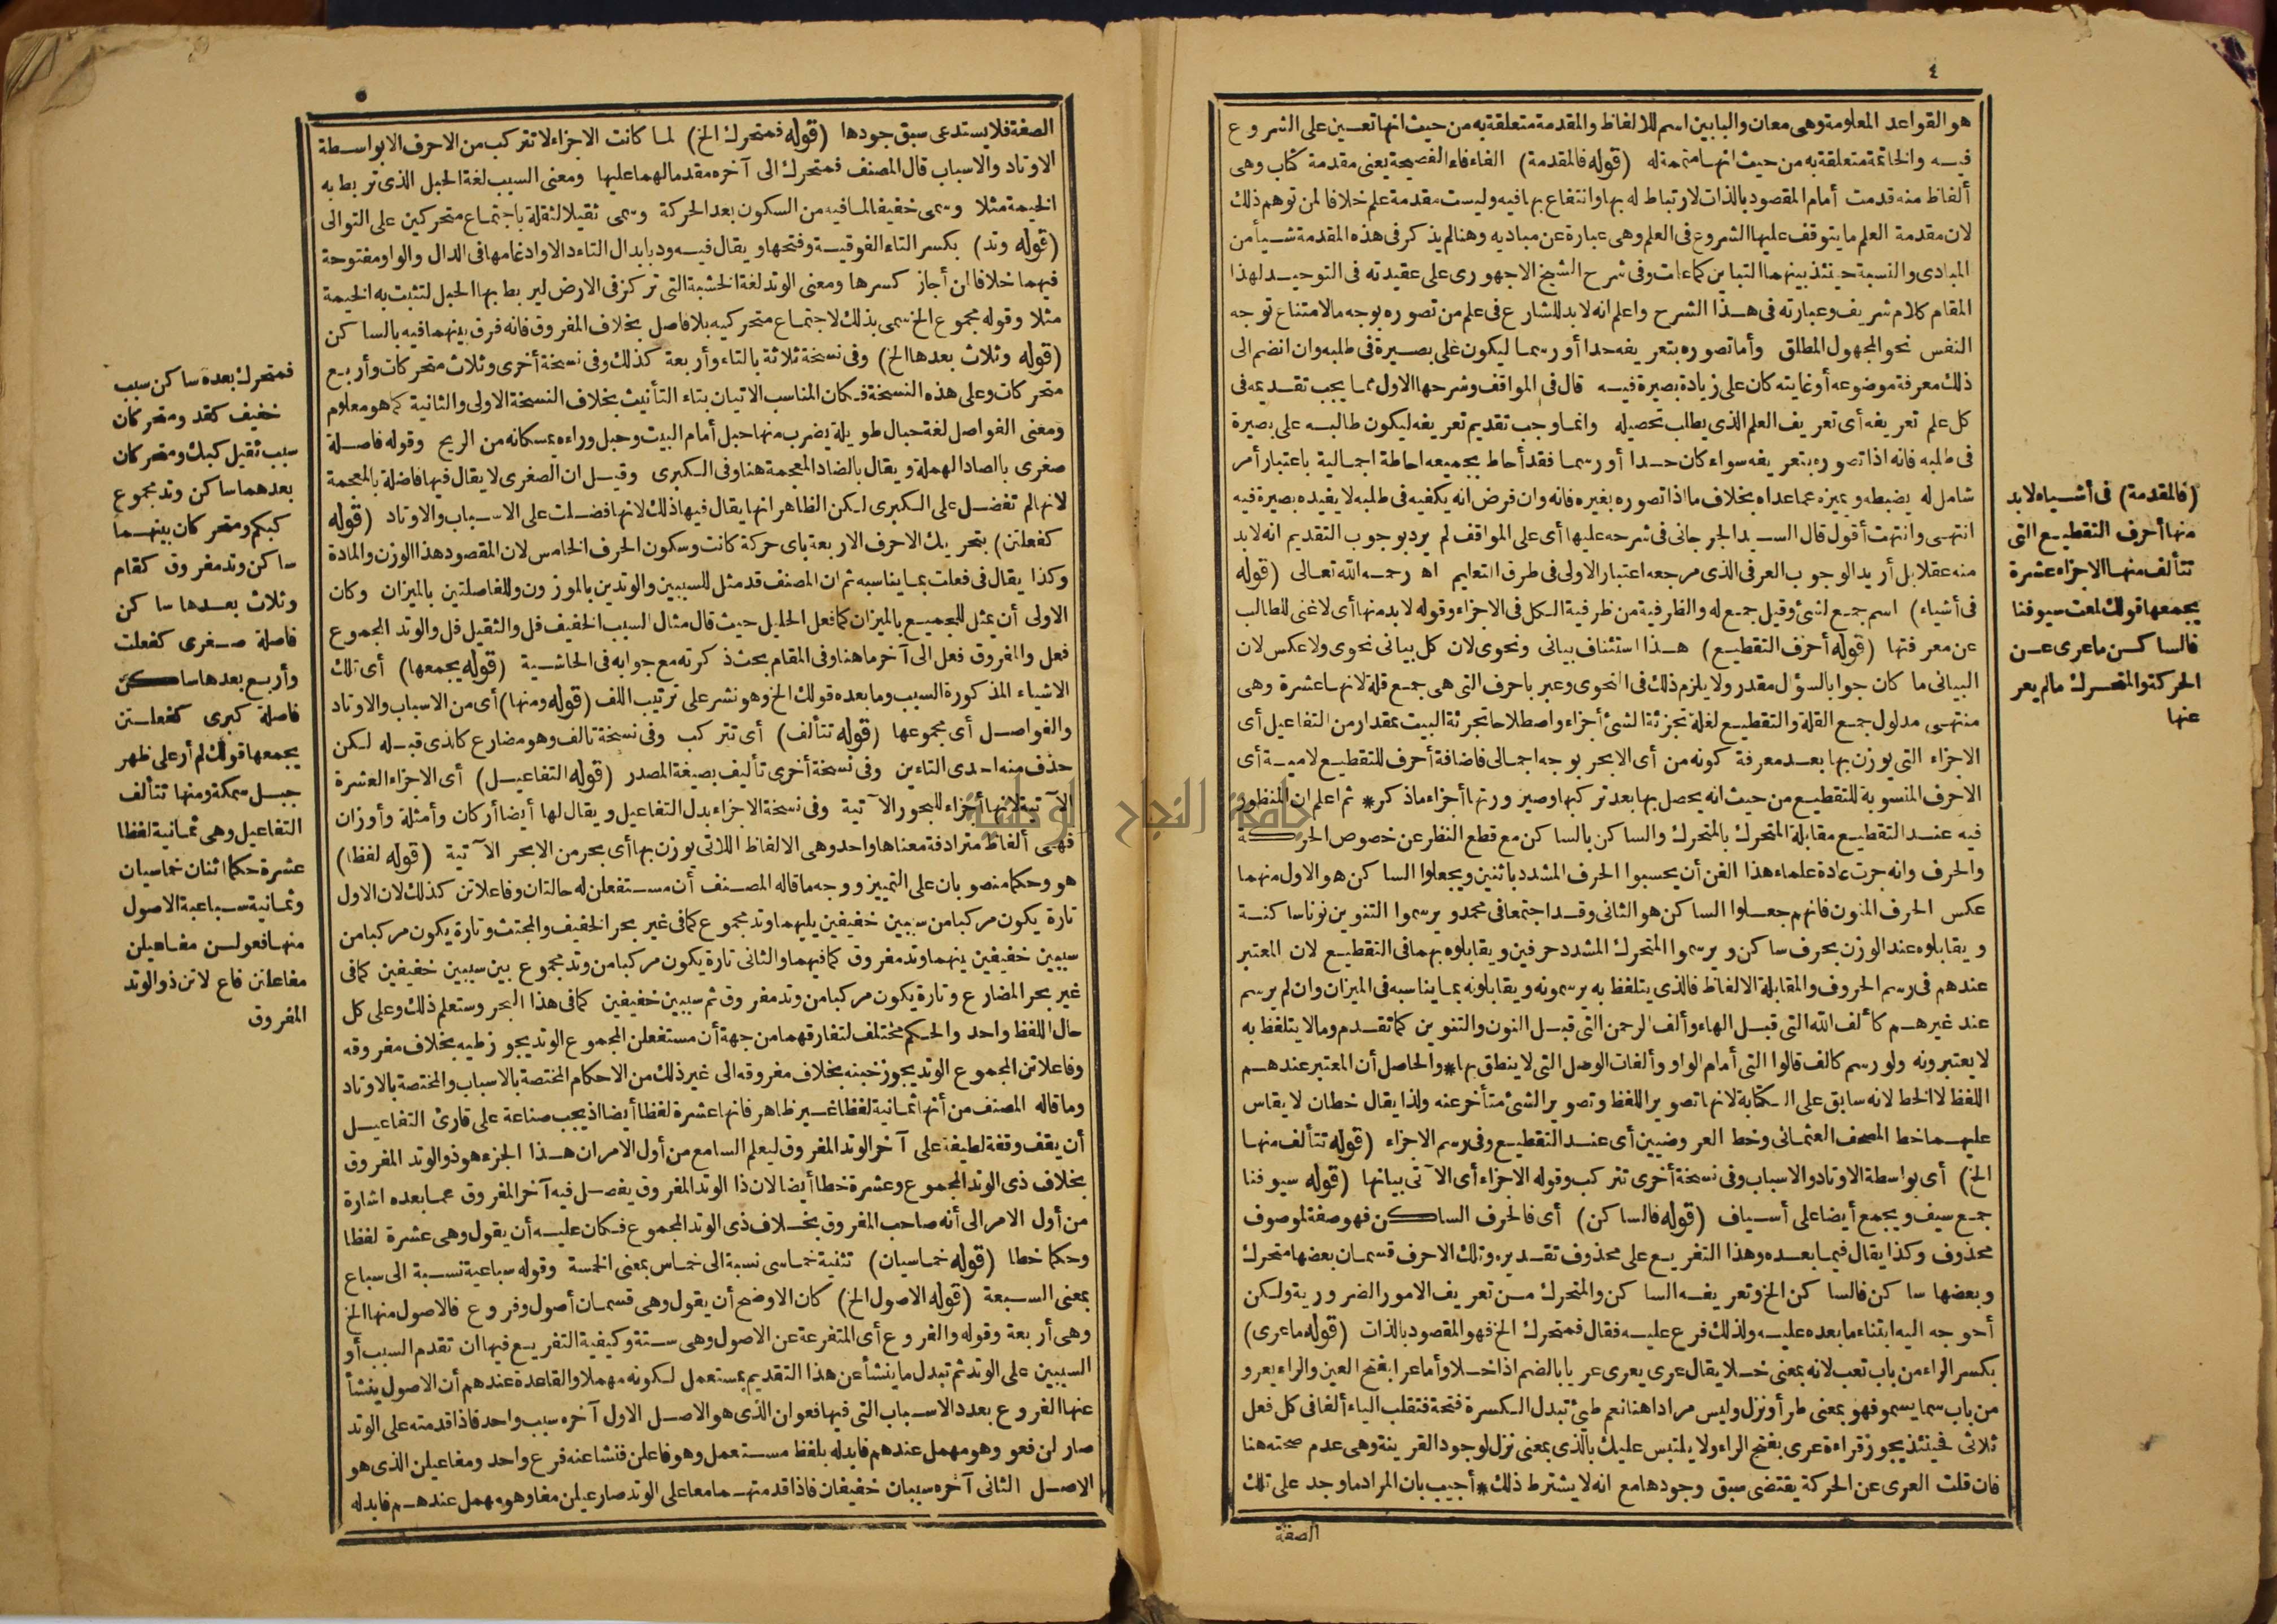 ٤
هو القواعد المعلومة وهي معان والبابين اسم للالفاظ والمقدمة متعلقة به من حيث انها تعين على الشروع
فيه والخاتمة متعلقة به من حيث انها متممة له (قوله فالمقدمة) الفاء فاء الفصيحة يعني مقدمة كتاب وهي
ألفاظ منه قدمت أمام المقصود بالذات لارتباط له بها وانتفاع بها فيه وليست مقدمة علم خلافا لمن توهم ذلك
لان مقدمة العلم ما يتوقف عليها الشروع في العلم وهي عبارة عن مباديه وهنا لم يذكر في هذه المقدمة شيأ من
المبادى والنسبة حينئذ بينهما التباين كما علمت وفى شرح الشيخ الاجهورى على عقيدته فى التوحيد لهذا
المقام كلام شريف وعبارته فى هذا الشرح واعلم انه لابد للشارع فى علم من تصوره بوجه ما لامتناع توجه
النفس نحو المجهول المطلق وأما تصوره بتعريفه حدا أو رسما ليكون على بصيرة فى طلبه وان انضم الى
ذلك معرفة موضوعه أو غايته كان على زيادة بصيرة فيه قال فى المواقف وشرحها الاول مما يجب تقديمه فى
كل علم تعريفه أى تعريف العلم الذى يطلب تحصيله وانما وجب تقديم تعريفه ليكون طالبه على بصيرة
فى طلبه فانه اذا تصوره بتعريفه سواء كان حدا أو رسما فقد أحاط بجميعه احاطة اجمالية باعتبار أمر
شامل له يضبطه ويميزه عما عداه بخلاف ما اذا تصوره بغيره فانه وان فرض انه يكفيه فى طلبه لا يفيده بصيرة فيه
انتهى وانتهت أقول قال السيد الجرجانى فى شرحه عليها أى على المواقف لم يرد بوجوب التقديم انه لابد
منه عقلا بل أريد الوجوب العرفى الذى مرجعه اعتبار الاولى فى طرق التعليم اه رحمه الله تعالى (قوله
فى أشياء) اسم جمع لشئ وقيل جمع له والظرفية من ظرفية الكل فى الاجزاء وقوله لابد منها أى لاغنى للطالب
عن معرفتها (قوله أحرف التقطيع) هذا استئناف بيانى ونحوى لان كل بيانى نحوى ولا عكس لان
البيانى ما كان جوابا لسؤال مقدر ولا يلزم ذلك فى النحوى وعبر باحرف التى هى جمع قلة لانها عشرة وهى
منتهى مدلول جمع القلة والتقطيع لغة تجزئة الشئ أجزاء واصطلاحا تجزئة البيت بمقدار من التفاعيل أى
الاجزاء التى يوزن بها بعد معرفة كونه من أى الابحر بوجه اجمالى فاضافة أحرف للتقطيع لامية أى
الاحرف المنسوبة للتقطيع من حيث انه يحصل بها بعد تركبها وصيرورتها أجزاء ماذكر * ثم اعلم ان المنظور
فيه عند التقطيع مقابلة المتحرك بالمتحرك والساكن بالساكن مع قطع النظر عن خصوص الحركة
والحرف وانه جرت عادة علماء هذا الفن أن يحسبوا الحرف المشدد باثنين ويجعلوا الساكن هو الاول منهما
عكس الحرف المنون فانهم جعلوا الساكن هو الثانى وقد اجتمعا فى محمد ويرسموا التنوين نونا ساكنة
ويقابلوه عند الوزن بحرف ساكن ويرسموا المتحرك المشدد حرفين ويقابلوه بهما فى التقطيع لان المعتبر
عندهم فى رسم الحروف والمقابلة الالفاظ فالذى يتلفظ به يرسمونه ويقابلونه بما يناسبه فى الميزان وان لم يرسم
عند غيرهم كألف الله التى قبل الهاء وألف الرحمن التى قبل النون والتنوين كما تقدم وما لا يتلفظ به
لا يعتبرونه ولو رسم كالف قالوا التى أمام الواو وألفات الوصل التى لا ينطق بها * والحاصل أن المعتبر عندهم
اللفظ لا الخط لانه سابق على الكتابة لانها تصوير اللفظ وتصوير الشئ متأخر عنه ولذا يقال خطان لا يقاس
عليهما خط المصحف العثمانى وخط العروضيين أى عند التقطيع وفى رسم الاجزاء (قوله تتألف منها
الخ) أى بواسطة الاوتاد والاسباب وفى نسخة أخرى تتركب وقوله الاجزاء أى الآتى بيانها (قوله سيوفنا
جمع سيف ويجمع أيضا على أسياف (قوله فالساكن) أى فالحرف الساكن فهو صفة لموصوف
محذوف وكذا يقال فيما بعده وهذا التفريع على محذوف تقديره وتلك الاحرف قسمان بعضها متحرك
وبعضها ساكن فالساكن الخ وتعريفه الساكن والمتحرك من تعريف الامور الضرورية ولكن
أحوجه اليه ابتناء ما بعده عليه ولذلك فرع عليه فقال فمتحرك الخ فهو المقصود بالذات (قوله ماعرى)
بكسر الراء من باب تعب لانه بمعنى خلا يقال عرى يعرى عريا بالضم اذا خلا وأما عرا بفتح العين والراء يعرو
من باب سما يسمو فهو بمعنى طرأ ونزل وليس مرادا هنا نعم طيئ تبدل الكسرة فتحة فتقلب الياء ألفا فى كل فعل
ثلاثى فحينئذ يجوز قراءة عرى بفتح الراء ولا يلتبس عليك بالذى بمعنى نزل لوجود القرينة وهى عدم صحته هنا
فان قلت العرى عن الحركة يقتضى سبق وجودها مع انه لا يشترط ذلك * أجيب بان المراد ما وجد على تلك
الصفة
(فالمقدمة) فى أشياء لابد
منها أحرف التقطيع التى
تتألف منها الاجزاء عشرة
يجمعها قولك لمعت سيوفنا
فالساكن ماعرى عن
الحركة والمتحرك مالم يعر
عنها
٥
الصفة فلا يستدعى سبق وجودها (قوله فمتحرك الخ) لما كانت الاجزاء لا تتركب من الاحرف الا بواسطة
الاوتاد والاسباب قال المصنف فمتحرك الى آخره مقدما لهما عليها ومعنى السبب لغة الحبل الذى تربط به
الخيمة مثلا وسمى خفيفا لما فيه من السكون بعد الحركة وسمى ثقيلا لثقله باجتماع متحركين على التوالى
(قوله وتد) بكسر التاء الفوقية وفتحها ويقال فيه ود بابدال التاء دالا وادغامها فى الدال والواو مفتوحة
فيهما خلافا لمن أجاز كسرها ومعنى الوتد لغة الخشبة التى تركز فى الارض ليربط بها الحبل لتثبت به الخيمة
مثلا وقوله مجموع الخ سمى بذلك لاجتماع متحركيه بلا فاصل بخلاف المفروق فانه فرق بينهما فيه بالساكن
(قوله وثلاث بعدها الخ) وفى نسخة ثلاثة بالتاء وأربعة كذلك وفى نسخة أخرى وثلاث متحركات وأربع
متحركات وعلى هذه النسخة فكان المناسب الاتيان بتاء التأنيث بخلاف النسخة الاولى والثانية كما هو معلوم
ومعنى الفواصل لغة حبال طويلة يضرب منها حبل أمام البيت وحبل وراءه يمسكانه من الريح وقوله فاصلة
صغرى بالصاد المهملة ويقال بالضاد المعجمة هنا وفى الكبرى وقيل ان الصغرى لا يقال فيها فاضلة بالمعجمة
لانها لم تفضل على الكبرى لكن الظاهر انها يقال فيها ذلك لانها فضلت على الاسباب والاوتاد (قوله
كفعلتن) بتحريك الاحرف الاربعة باى حركة كانت وسكون الحرف الخامس لان المقصود هذا الوزن والمادة
وكذا يقال فى فعلت بما يناسبه ثم ان المصنف قد مثل للسببين والوتدين بالموزون وللفاصلتين بالميزان وكان
الاولى أن يمثل للجميع بالميزان كما فعل الخليل حيث قال مثال السبب الخفيف فل والثقيل فل والوتد المجموع
فعل والمفروق فعل الى آخر ما هنا وفى المقام بحث ذكرته مع جوابه فى الحاشية (قوله يجمعها) أى تلك
الاشياء المذكورة السبب وما بعده قولك الخ وهو نشر على ترتيب اللف (قوله ومنها) أى من الاسباب والاوتاد
والفواصل أى مجموعها (قوله تتألف) أى تتركب وفى نسخة تالف وهو مضارع كالذى قبله لكن
حذف منه احدى التاءين وفى نسخة أخرى تأليف بصيغة المصدر (قوله التفاعيل) أى الاجزاء العشرة
الآتية لانها أجزاء للبحور الآتية وفى نسخة الاجزاء بدل التفاعيل ويقال لها أيضا أركان وأمثلة وأوزان
فهى ألفاظ مترادفة معناها واحد وهى الالفاظ اللاتى يوزن بها أى بحر من الابحر الآتية (قوله لفظا)
هو وحكما منصوبان على التمييز ووجه ما قاله المصنف أن مستفعلن له حالتان وفاعلاتن كذلك لان الاول
تارة يكون مركبا من سببين خفيفين يليهما وتد مجموع كما فى غير بحر الخفيف والمجتث وتارة يكون مركبا من
سببين خفيفين بينهما وتد مفروق كما فيهما والثانى تارة يكون مركبا من وتد مجموع بين سببين خفيفين كما فى
غير بحر المضارع وتارة يكون مركبا من وتد مفروق ثم سببين خفيفين كما فى هذا البحر وستعلم ذلك وعلى كل
حال اللفظ واحد والحكم مختلف لتفارقهما من جهة أن مستفعلن المجموع الوتد يجوز طيه بخلاف مفروقه
وفاعلاتن المجموع الوتد يجوز خبنه بخلاف مفروقه الى غير ذلك من الاحكام المختصة بالاسباب والمختصة بالاوتاد
وما قاله المصنف من أنها ثمانية لفظا غير ظاهر فانها عشرة لفظا أيضا اذ يجب صناعة على قارئ التفاعيل
أن يقف وقفة لطيفة على آخر الوتد المفروق ليعلم السامع من أول الامر ان هذا الجزء هو ذو الوتد المفروق
بخلاف ذى الوتد المجموع وعشرة خطا أيضا لان ذا الوتد المفروق يفصل فيه آخر المفروق عما بعده اشارة
من أول الامر الى أنه صاحب المفروق بخلاف ذى الوتد المجموع فكان عليه أن يقول وهى عشرة لفظا
وحكما خطا (قوله خماسيان) تثنية خماسى نسبة الى خماس بمعنى الخمسة وقوله سباعية نسبة الى سباع
بمعنى السبعة (قوله الاصول الخ) كان الاوضح أن يقول وهى قسمان أصول وفروع فالاصول منها الخ
وهى أربعة وقوله والفروع أى المتفرعة عن الاصول وهى ستة وكيفية التفريع فيها ان تقدم السبب أو
السببين على الوتد ثم تبدل ما ينشأ عن هذا التقديم بمستعمل لكونه مهملا والقاعدة عندهم أن الاصول ينشأ
عنها الفروع بعدد الاسباب التى فيها فعولن الذى هو الاصل الاول آخره سبب واحد فاذا قدمته على الوتد
صار لن فعو وهو مهمل عندهم فابدله بلفظ مستعمل وهو فاعلن فنشأ عنه فرع واحد ومفاعيلن الذى هو
الاصل الثانى آخره سببان خفيفان فاذا قدمتهما معا على الوتد صار عيلن مفا وهو مهمل عندهم فابدله
فمتحرك بعده ساكن سبب
خفيف كقد ومتحركان
سبب ثقيل كبك ومتحركان
بعدهما ساكن وتد مجموع
كبكم ومتحركان بينهما
ساكن وتد مفروق كقام
وثلاث بعدها ساكن
فاصلة صغرى كفعلت
وأربع بعدها ساكن
فاصلة كبرى كفعلتن
يجمعها قولك لم أر على ظهر
جبل سمكة ومنها تتألف
التفاعيل وهى ثمانية لفظا
عشرة حكما اثنان خماسيان
وثمانية سباعية الاصول
منها فعولن مفاعيلن
مفاعلتن فاع لاتن ذو الوتد
المفروق
جامعة النجاح الوطنية